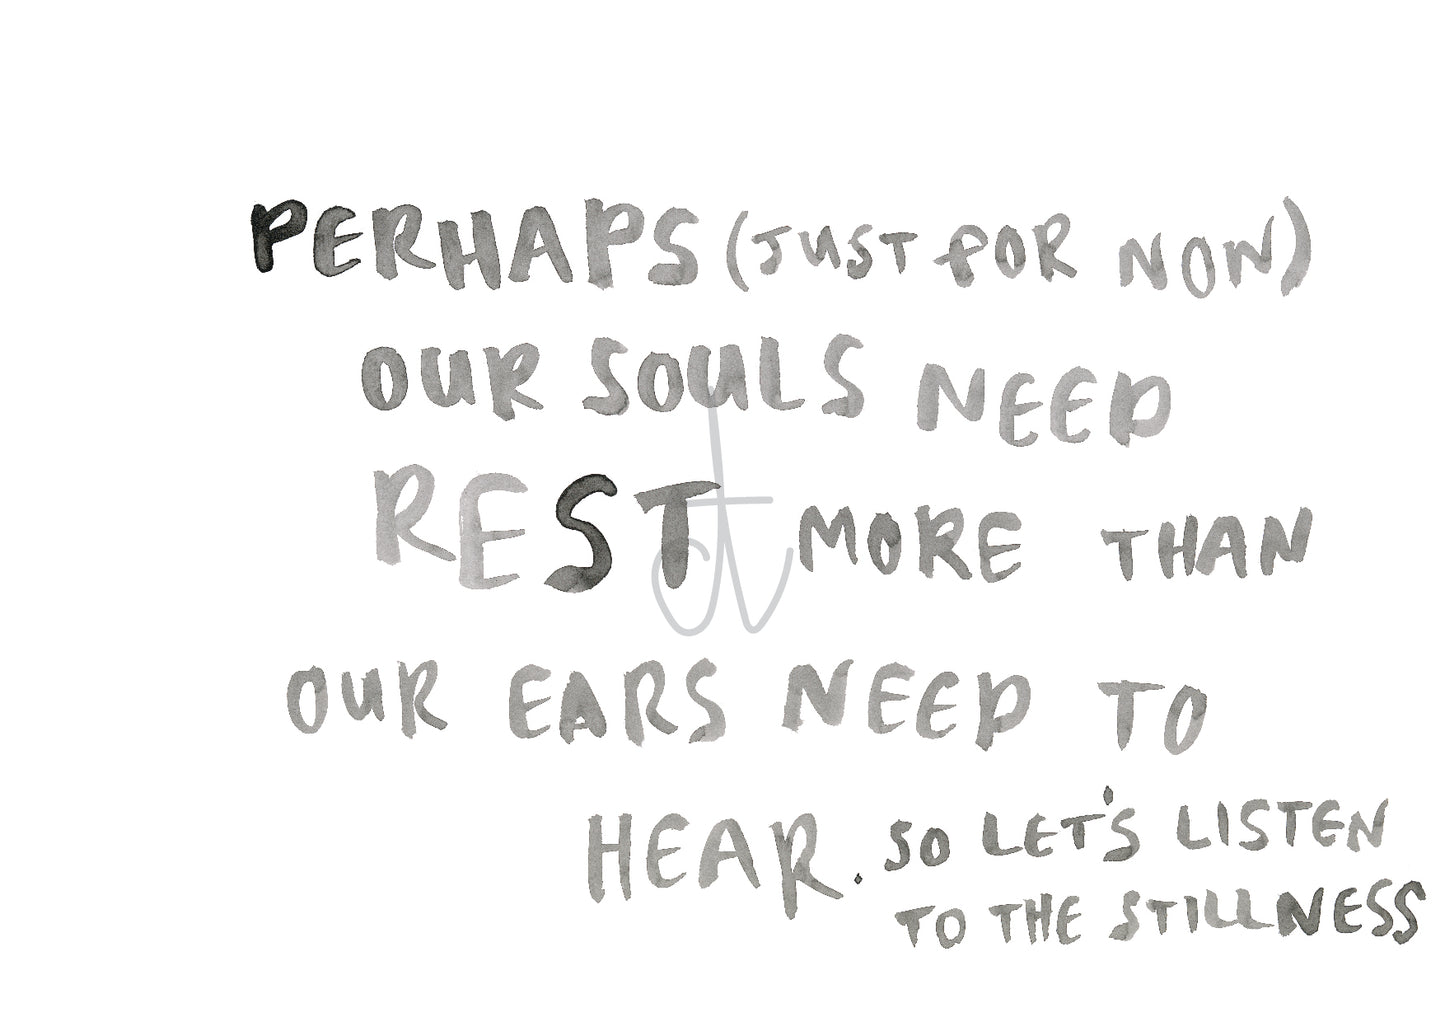 PERHAPS (JUST FOR NOW)
OUR SOULS NEED
REST MORE THAN
OUR EARS NEED TO
HEAR. SO LET'S LISTEN
TO THE STILLNESS